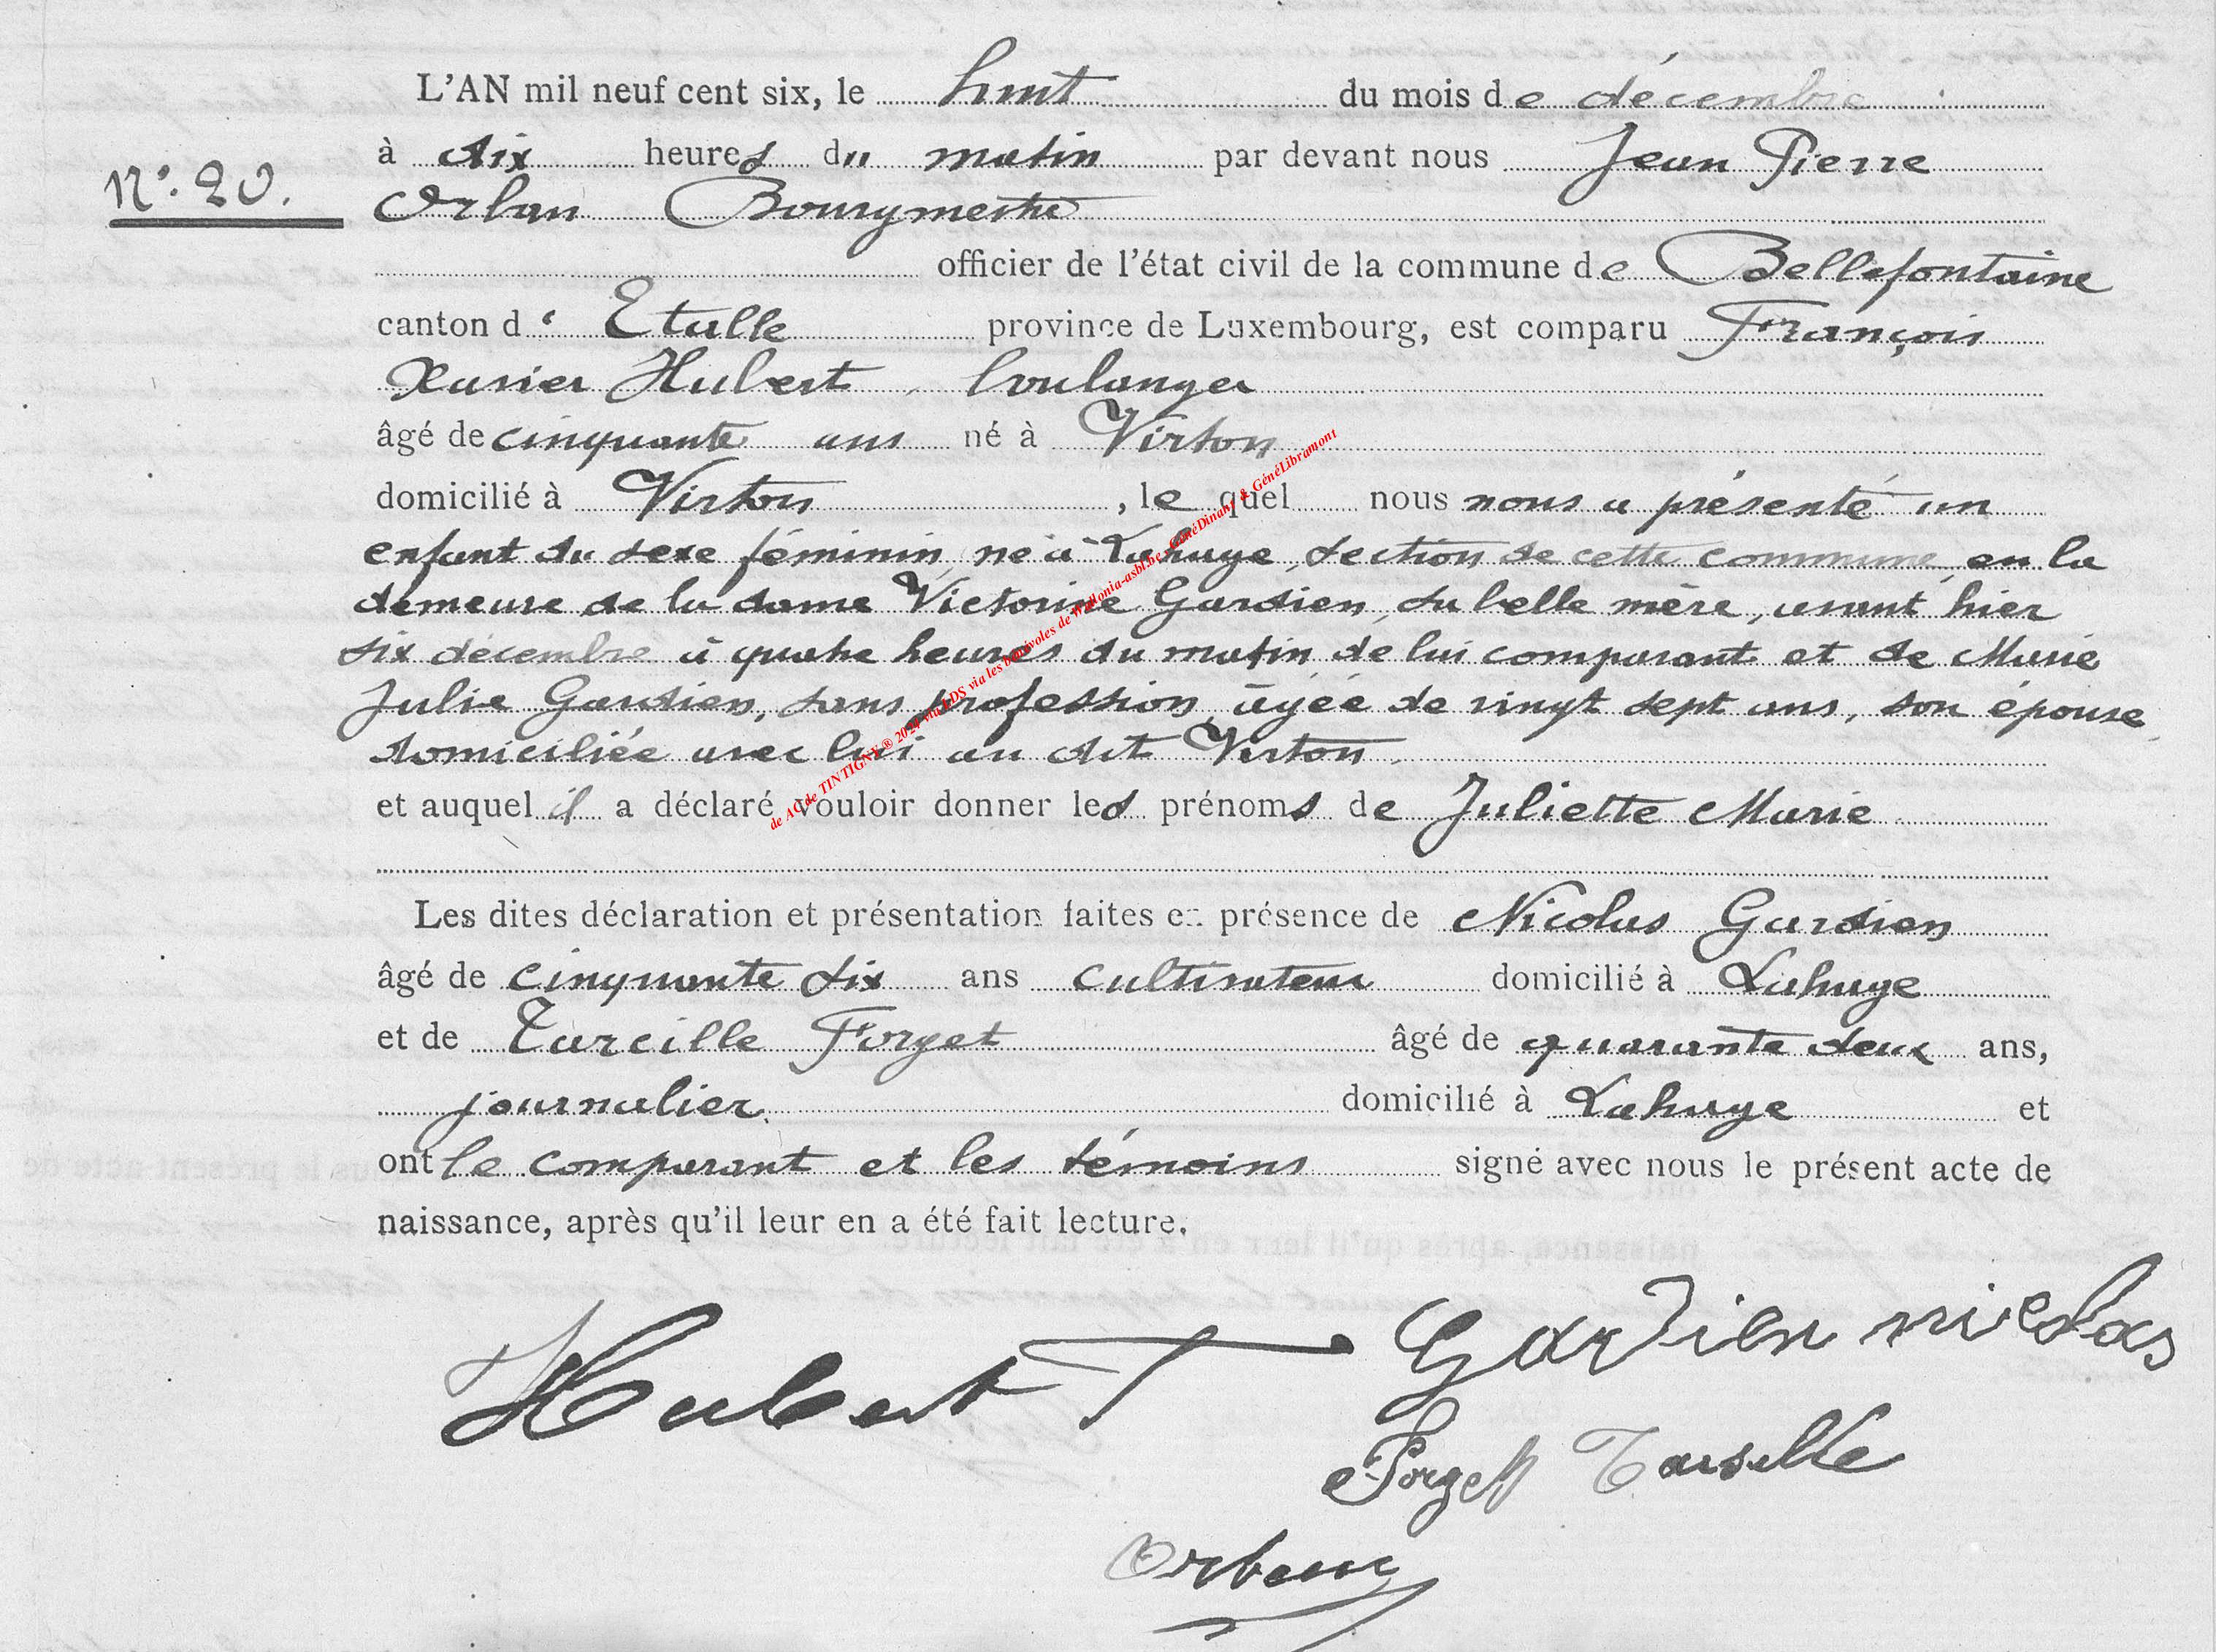 L'AN mil neuf cent six, le huit du mois de décembre
à dix heures du matin par devant nous Jean Pierre
N°. 20.
Orban Bourgmestre
officier de l'état civil de la commune de Bellefontaine
canton d' Etalle province de Luxembourg, est comparu François
Xavier Hubert, boulanger
âgé de cinquante ans né à Virton
domicilié à Virton, le quel nous nous a présenté un
enfant du sexe féminin, né à Lahage, section de cette commune, en la
demeure de la dame Victorine Gardien, sa belle mère, avant hier
six décembre à quatre heures du matin de lui comparant et de Marie
Julie Gardien, sans profession, âgée de vingt sept ans, son épouse
domiciliée avec lui au dit Virton.
et auquel il a déclaré vouloir donner les prénoms de Juliette Marie
de AC de TINTIGNY ® 2024 via LDS via les bénévoles de Wallonia-asbl.be, GénéDinant & GénéLibramont
Les dites déclaration et présentation faites en présence de Nicolas Gardien
âgé de cinquante six ans cultivateur domicilié à Lahage
et de Tarcille Forget âgé de quarante deux ans,
journalier domicilié à Lahage et
ont le comparant et les témoins signé avec nous le présent acte de
naissance, après qu'il leur en a été fait lecture.
Hubert Gardien nicolas
Forget Tarsille
Orban